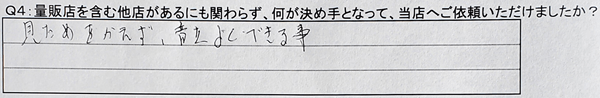 Q4:量販店を含む他店があるにも関わらず、何が決め手となって、当店へご依頼いただけましたか?
見ためをかえず、音をよくできる事